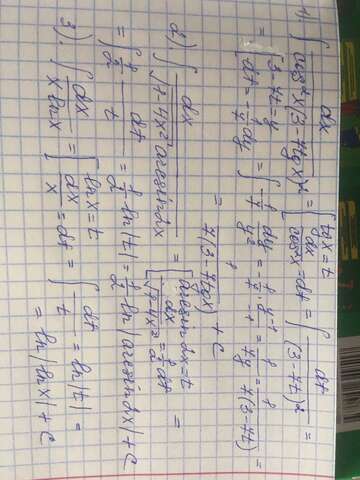 1) ∫ dx / (cos²x(3-4tgx)²) = [tgx=t; dx/cos²x=dt] = ∫ dt / (3-4t)² =
= [3-4t=y; dt=-1/4 dy] = ∫ -1/4 dy/y² = -1/4 · y⁻¹/-1 = 1/4y = 1/4(3-4t) =
= 1/4(3-4tgx) + C
2) ∫ dx / (√1-4x² arcsin2x) = [arcsin2x=t; dx/√1-4x² = 1/2 dt] =
= ∫ 1/2 dt/t = 1/2 ln|t| = 1/2 ln|arcsin2x| + C
3). ∫ dx / (x·lnx) = [lnx=t; dx/x=dt] = ∫ dt/t = ln|t| =
= ln|lnx| + C